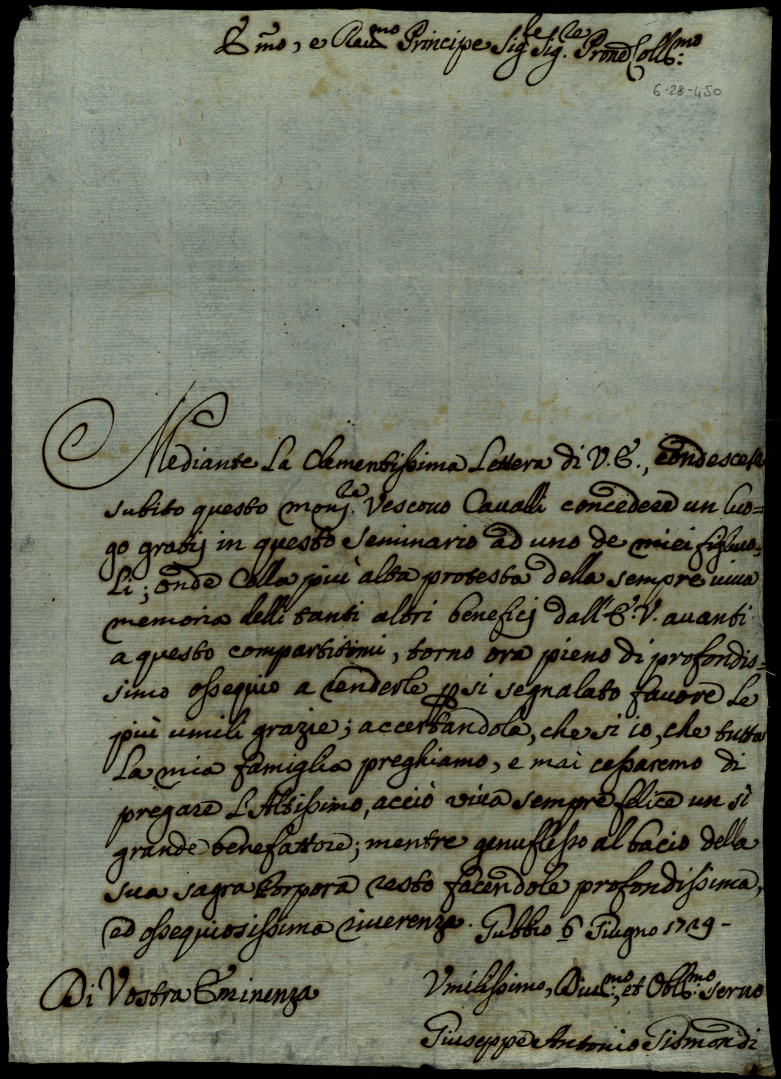 Emo, e Reumo Principe Sigre Sigre Prone Collmo:
6-28-450
Mediante la Clementissima Lettera di V. E., condescese
subito questo monsre. Vescouo Caualli concedere un luo=
go gratis in questo Seminario ad uno de miei figliuo=
li; onde colla più alta protesta della sempre viua
memoria delli tanti altri beneficij dall'E. V. auanti
a questo compartitimi, torno ora pieno di profondis=
simo ossequio a renderle p si segnalato fauore le
più umili grazie; accertandola, che si io, che tutta
la mia famiglia preghiamo, e mai cessaremo di
pregare l'Altissimo, acciò viua sempre felice un sì
grande benefattore; mentre genuflesso al bacio della
sua sagra Porpora resto facendole profondissima,
ed ossequiosissima riuerenza. Gubbio 6 Giugno 1729-
Di Vostra Eminenza
Vmilissimo, Diumo:, et Obblmo: seruo
Giuseppe Antonio Gismondi